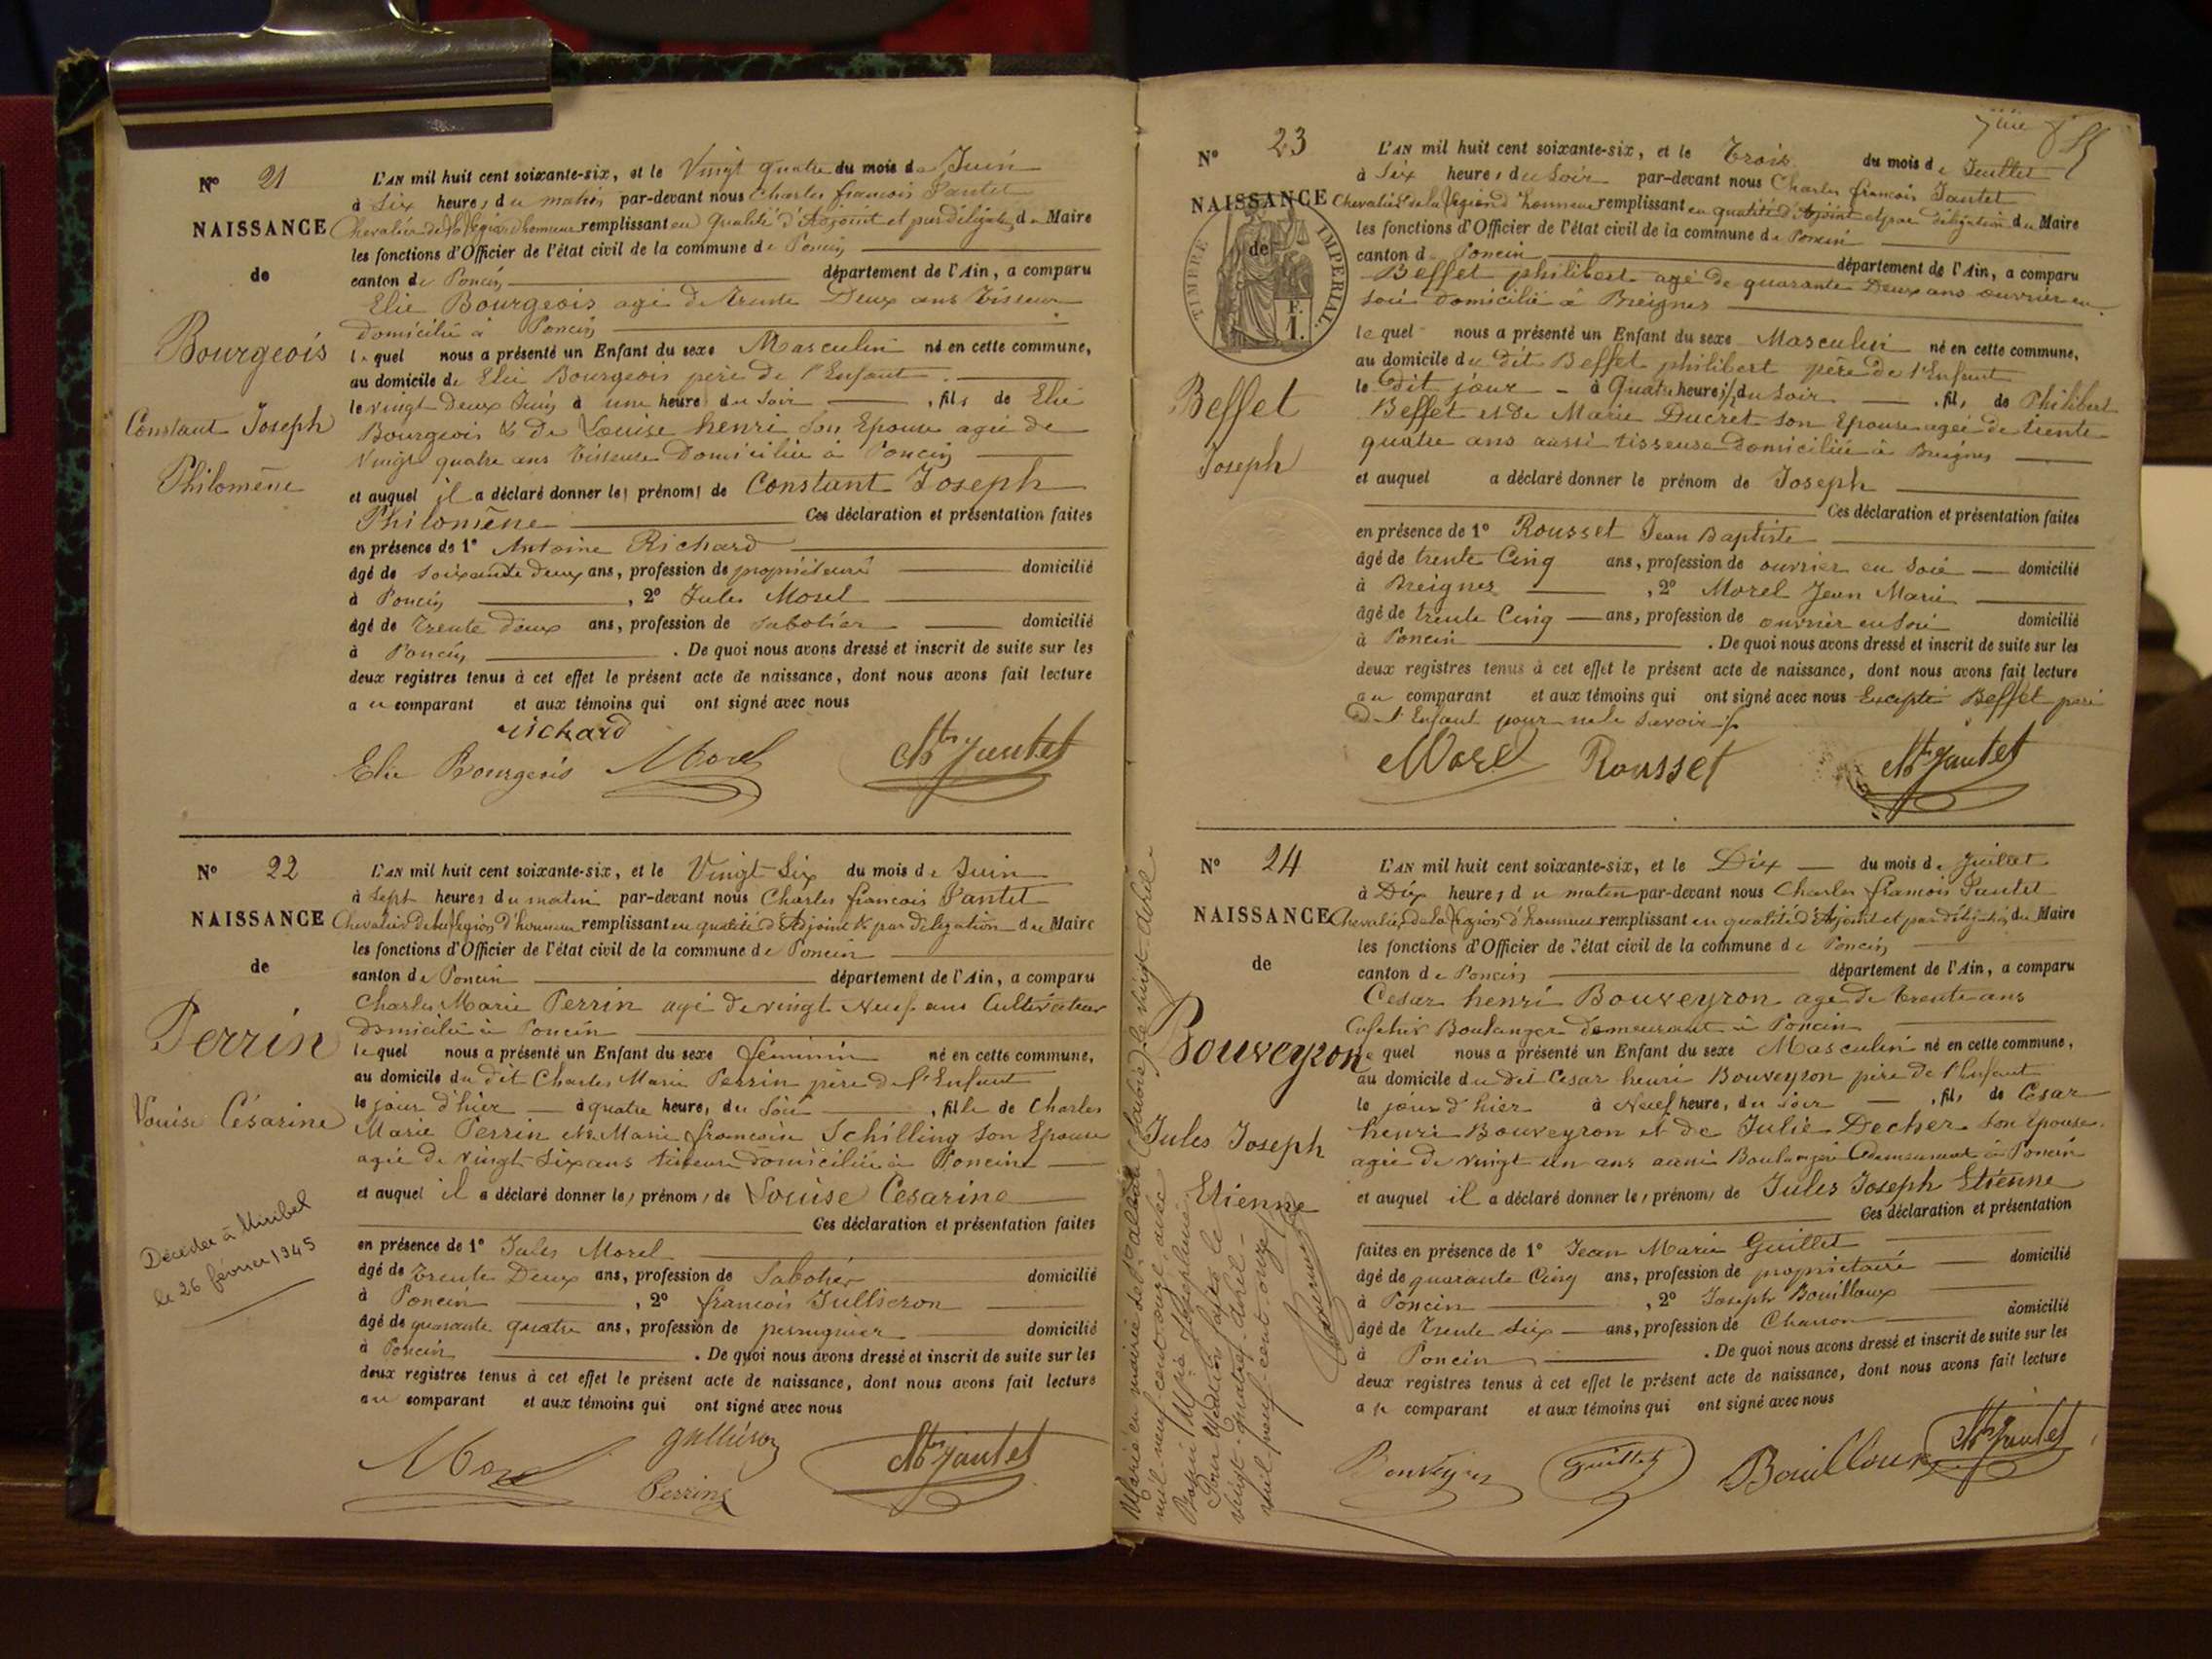 N° 21
NAISSANCE
de
Bourgeois
Constant Joseph
Philomène
L'AN mil huit cent soixante-six, et le Vingt quatre du mois de Juin
à Six heures du matin par-devant nous Charles francois Jantet
Chevalier de la Légion d'honneur remplissant en qualité d'Adjoint et par délégation du Maire
les fonctions d'Officier de l'état civil de la commune de Poncin
canton de Poncin département de l'Ain, a comparu
Elie Bourgeois agé de trente Deux ans Tisseur
domicilié à Poncin
lequel nous a présenté un Enfant du sexe Masculin né en cette commune,
au domicile de Elie Bourgeois père de l'Enfant
le vingt Deux Juin à une heure du Soir, fils de Elie
Bourgeois & De Louise henri Son Epouse agée de
Vingt quatre ans Tisseuse Domiciliée à Poncin
et auquel il a déclaré donner les prénoms de Constant Joseph
Philomène Ces déclaration et présentation faites
en présence de 1° Antoine Richard
âgé de soixante deux ans, profession de propriétaire domicilié
à Poncin, 2° Jules Morel
âgé de Trente deux ans, profession de Sabotier domicilié
à Poncin. De quoi nous avons dressé et inscrit de suite sur les
deux registres tenus à cet effet le présent acte de naissance, dont nous avons fait lecture
au comparant et aux témoins qui ont signé avec nous
richard
Elie Bourgeois Morel Jantet
N° 22
NAISSANCE
de
Perrin
Louise Césarine
Décédée à Miribel
le 26 février 1945
L'AN mil huit cent soixante-six, et le Vingt Six du mois de Juin
à Sept heures du matin par-devant nous Charles francois Jantet
Chevalier De la Légion d'honneur remplissant en qualité d'Adjoint & par délégation du Maire
les fonctions d'Officier de l'état civil de la commune de Poncin
canton de Poncin département de l'Ain, a comparu
Charles Marie Perrin agé de vingt Neuf ans Cultivateur
domicilié à Poncin
lequel nous a présenté un Enfant du sexe féminin né en cette commune,
au domicile du dit Charles Marie Perrin père de l'Enfant
le jour d'hier à quatre heures du Soir, fille de Charles
Marie Perrin & Marie francoise Schilling Son Epouse
agée de vingt Six ans tisseuse domiciliée à Poncin
et auquel il a déclaré donner les prénoms de Louise Cesarine
Ces déclaration et présentation faites
en présence de 1° Jules Morel
âgé de Trente Deux ans, profession de Sabotier domicilié
à Poncin, 2° francois Jullieron
âgé de quarante quatre ans, profession de perruquier domicilié
à Poncin. De quoi nous avons dressé et inscrit de suite sur les
deux registres tenus à cet effet le présent acte de naissance, dont nous avons fait lecture
au comparant et aux témoins qui ont signé avec nous
Morel Perrin Jantet
N° 23
NAISSANCE
de
TIMBRE IMPERIAL
1 F.
Beffet
Joseph
L'AN mil huit cent soixante-six, et le Trois du mois de Juillet
à Six heures du Soir par-devant nous Charles francois Jantet
Chevalier de la Légion d'honneur remplissant en qualité d'Adjoint et par délégation du Maire
les fonctions d'Officier de l'état civil de la commune de Poncin
canton de Poncin département de l'Ain, a comparu
Beffet philibert agé de quarante Deux ans ouvrier en
Soie Domicilié à Breignes
lequel nous a présenté un Enfant du sexe Masculin né en cette commune,
au domicile du dit Beffet philibert père de l'Enfant
le dit jour à Quatre heures ½ du Soir, fils de Philibert
Beffet et De Marie Ducret Son Epouse agée de trente
quatre ans aussi tisseuse Domiciliée à Breignes
et auquel a déclaré donner le prénom de Joseph
Ces déclaration et présentation faites
en présence de 1° Rousset Jean Baptiste
âgé de trente Cinq ans, profession de ouvrier en Soie domicilié
à Breignes, 2° Morel Jean Marie
âgé de trente Cinq ans, profession de ouvrier en Soie domicilié
à Poncin. De quoi nous avons dressé et inscrit de suite sur les
deux registres tenus à cet effet le présent acte de naissance, dont nous avons fait lecture
au comparant et aux témoins qui ont signé avec nous Excepté Beffet père
De l'Enfant pour ne le Savoir
Morel Rousset Jantet
N° 24
NAISSANCE
de
Bouveyron
Jules Joseph
Etienne
Marié en mairie le vingt-avril
mil-neuf-cent-onze avec
Marie Joséphine
Pour Mention faite le
vingt-quatre-avril
mil-neuf-cent-onze
L'AN mil huit cent soixante-six, et le Dix du mois de Juillet
à Dix heures du matin par-devant nous Charles francois Jantet
Chevalier de la Légion d'honneur remplissant en qualité d'Adjoint et par délégation du Maire
les fonctions d'Officier de l'état civil de la commune de Poncin
canton de Poncin département de l'Ain, a comparu
Cesar henri Bouveyron agé de trente ans
Cafetier Boulanger demeurant à Poncin
lequel nous a présenté un Enfant du sexe Masculin né en cette commune,
au domicile du dit Cesar henri Bouveyron père de l'Enfant
le jour d'hier à Neuf heures du soir, fils de Cesar
henri Bouveyron et de Julie Decher Son Epouse
agée de vingt un ans aussi Boulangère demeurant à Poncin
et auquel il a déclaré donner les prénoms de Jules Joseph Etienne
Ces déclaration et présentation
faites en présence de 1° Jean Marie Guillet
âgé de quarante Cinq ans, profession de propriétaire domicilié
à Poncin, 2° Joseph Bouilloux
âgé de Trente Six ans, profession de Charron domicilié
à Poncin. De quoi nous avons dressé et inscrit de suite sur les
deux registres tenus à cet effet le présent acte de naissance, dont nous avons fait lecture
au comparant et aux témoins qui ont signé avec nous
Bouveyron Guillet Bouilloux Jantet